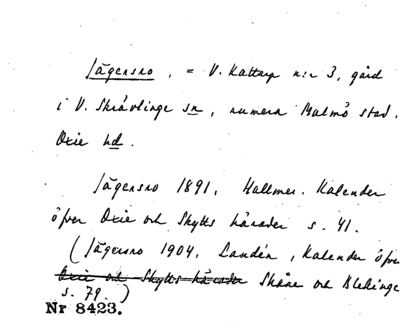 Jägersro, = V. Kattarp n:r 3, gård
i V. Skrävlinge sn, numera Malmö stad.
Oxie hd.
Jägersro 1891, Hallmer. Kalender
öfver Oxie och Skytts härader s. 41.
(Jägersro 1904, Landén, Kalender öfver
Oxie och Skytts härader Skåne och Blekinge
s. 79.)
Nr 8423.